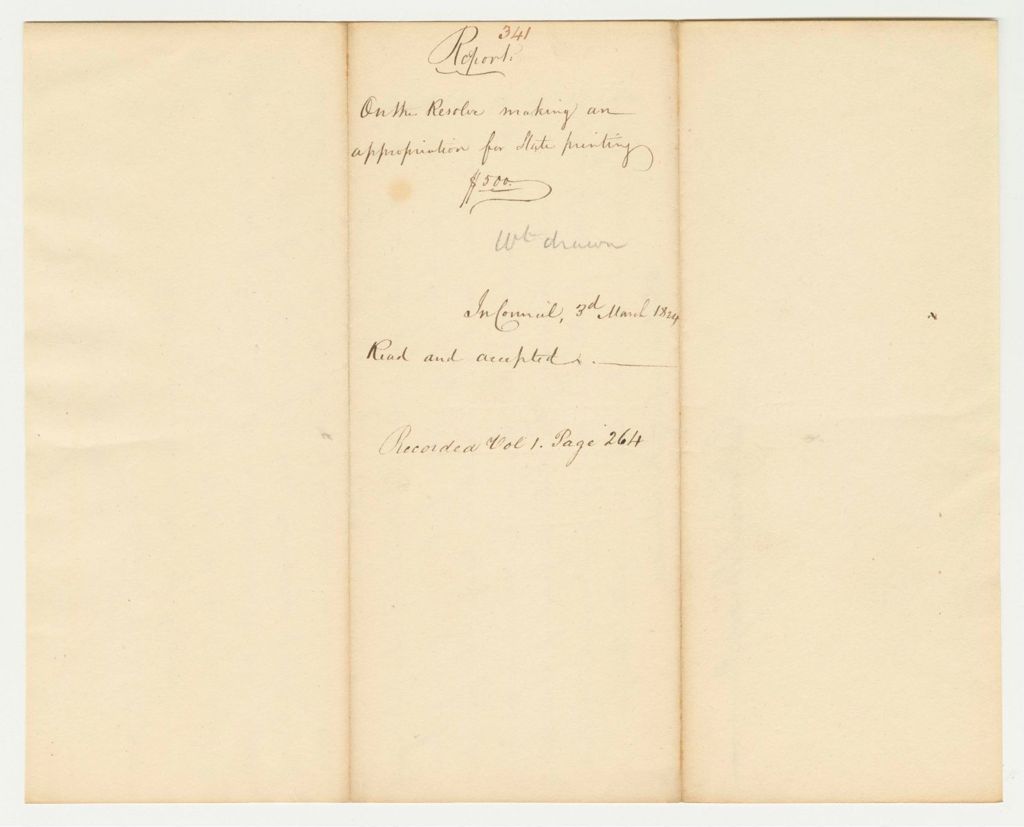 341
Report.
On the Resolve making an
appropriation for State printing
$500.
Wt drawn
In Council, 3d March 1824
Read and accepted.
Recorded Vol 1. Page 264